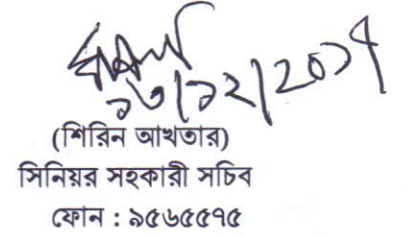 ১৩/১২/২০১৭
(শিরিন আখতার)
সিনিয়র সহকারী সচিব
ফোন : ৯৫৬৫৫৭৫